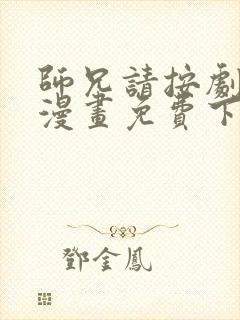 師兄請按劇
漫畫免費下
鄧金鳳